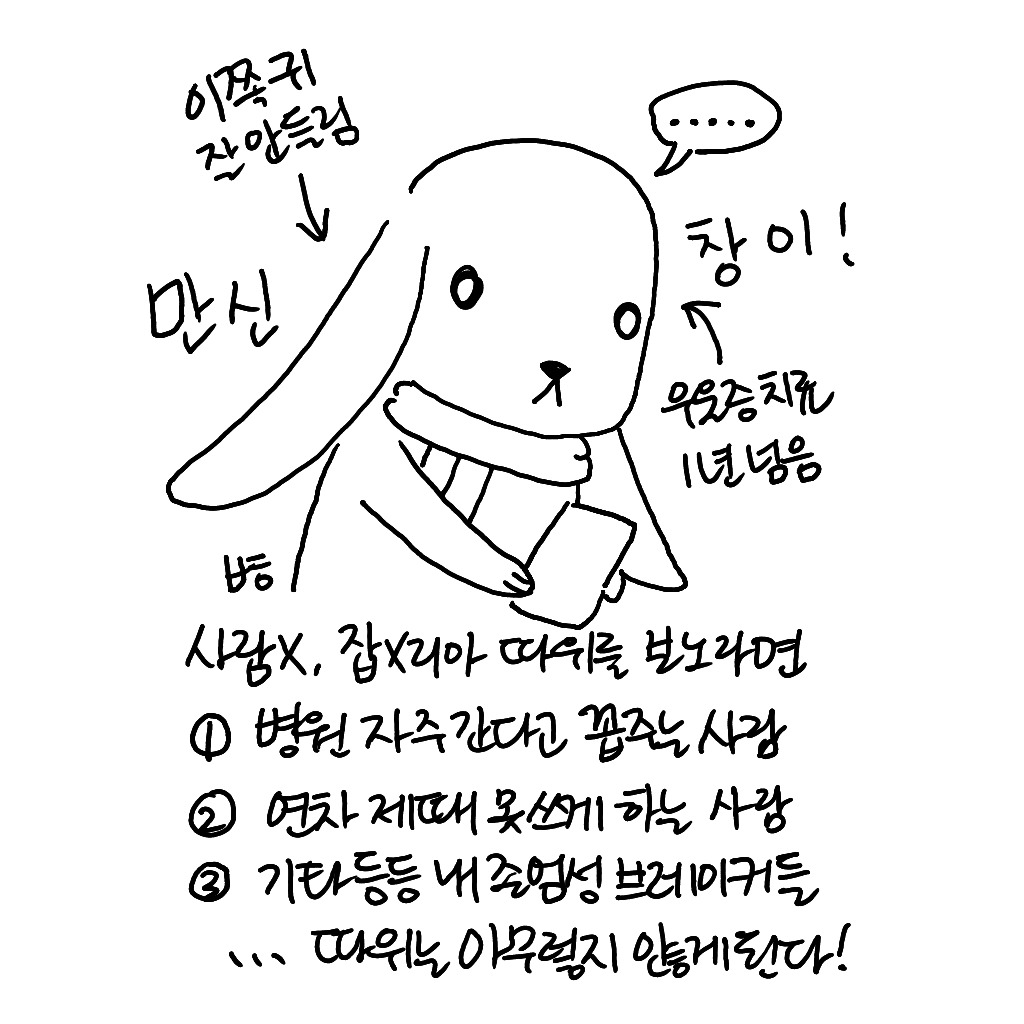 이쪽귀
잔 안들림
.....
만신
창이!
우웃증치료
1년 넘음
사람X, 잡X리아 따위를 보노라면
① 병원 자주간다고 꼽주는 사람
② 연차 제때 못쓰게 하는 사람
③ 기타등등 내 존엄성 브레이커들
... 따위는 아무렇지 않게된다!